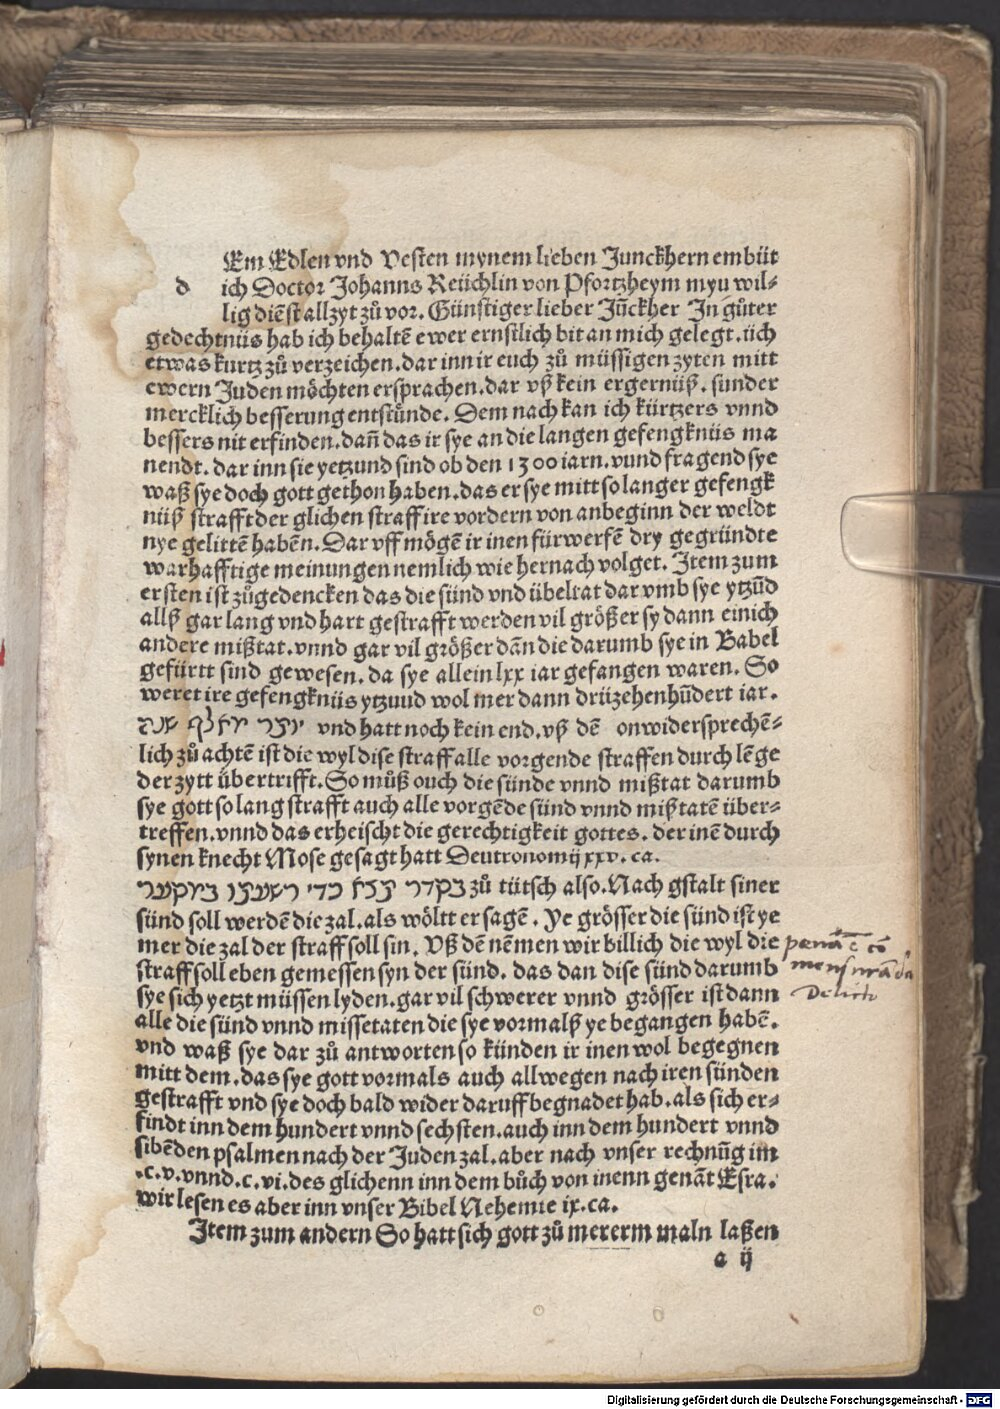 Em Edlen vnd Vesten mynem lieben Junckhern embüt
d ich Doctor Johanns Reüchlin von Pfortzheym myn wil-
lig diēst allzyt zů vor. Günstiger lieber Jūckher In gůter
gedechtnüs hab ich behaltē ewer ernstlich bit an mich gelegt. üch
etwas kurtz zů verzeichen. dar inn ir euch zů müssigen zyten mitt
ewern Juden möchten ersprachen. dar vß kein ergernüß. sunder
mercklich besserung entstünde. Dem nach kan ich kürtzers vnnd
bessers nit erfinden. dañ das ir sye an die langen gefengknüs ma
nendt. dar inn sie yetzund sind ob den 1300 iarn. vund fragend sye
waß sye doch gott gethon haben. das er sye mitt so langer gefengk
nüß strafft der glichen straff ire vordern von anbeginn der weldt
nye gelittē habēn. Dar vff mögē ir inen fürwerfē dry gegründte
warhafftige meinungen nemlich wie hernach volget. Item zum
ersten ist zůgedencken das die sünd vnd übeltat dar vmb sye ytzūd
allß gar lang vnd hart gestrafft werden vil größer sy dann einich
andere mißtat. vnnd gar vil größer dān die darumb sye in Babel
gefürtt sind gewesen. da sye allein lxx iar gefangen waren. So
weret ire gefengknüs ytzuud wol mer dann drüzehenhūdert iar.
vnd hatt noch kein end. vß dē onwidersprechē-
lich zů achtē ist die wyl dise straff alle vorgende straffen durch lēge
der zytt übertrifft. So můß ouch die sünde vnnd mißtat darumb
sye gott so lang strafft auch alle vorgēde sünd vnnd mißtatē über-
treffen. vnnd das erheischt die gerechtigkeit gottes. der inē durch
synen knecht Mose gesagt hatt Deutronomij xxv. ca.
zů tütsch also. Nach gstalt siner
sünd soll werdē die zal. als wöltt er sagē. Ye grösser die sünd ist ye
mer die zal der straff soll sin. Vß dē nēmen wir billich die wyl die
straff soll eben gemessen syn der sünd. das dan dise sünd darumb
sye sich yetzt müssen lyden. gar vil schwerer vnnd grösser ist dann
alle die sünd vnnd missetaten die sye vormalß ye begangen habē.
vnd waß sye dar zů antworten so künden ir inen wol begegnen
mitt dem. das sye gott vormals auch allwegen nach iren sünden
gestrafft vnd sye doch bald wider daruff begnadet hab. als sich er-
findt inn dem hundert vnnd sechsten. auch inn dem hundert vnnd
sibēden psalmen nach der Juden zal. aber nach vnser rechnūg im
.c.v. vnnd .c.vi. des glichenn inn dem bůch von inenn genāt Esra.
wir lesen es aber inn vnser Bibel Nehemie ix. ca.
Item zum andern So hatt sich gott zů mererm maln laßen
a ij
Digitalisierung gefördert durch die Deutsche Forschungsgemeinschaft - DFG